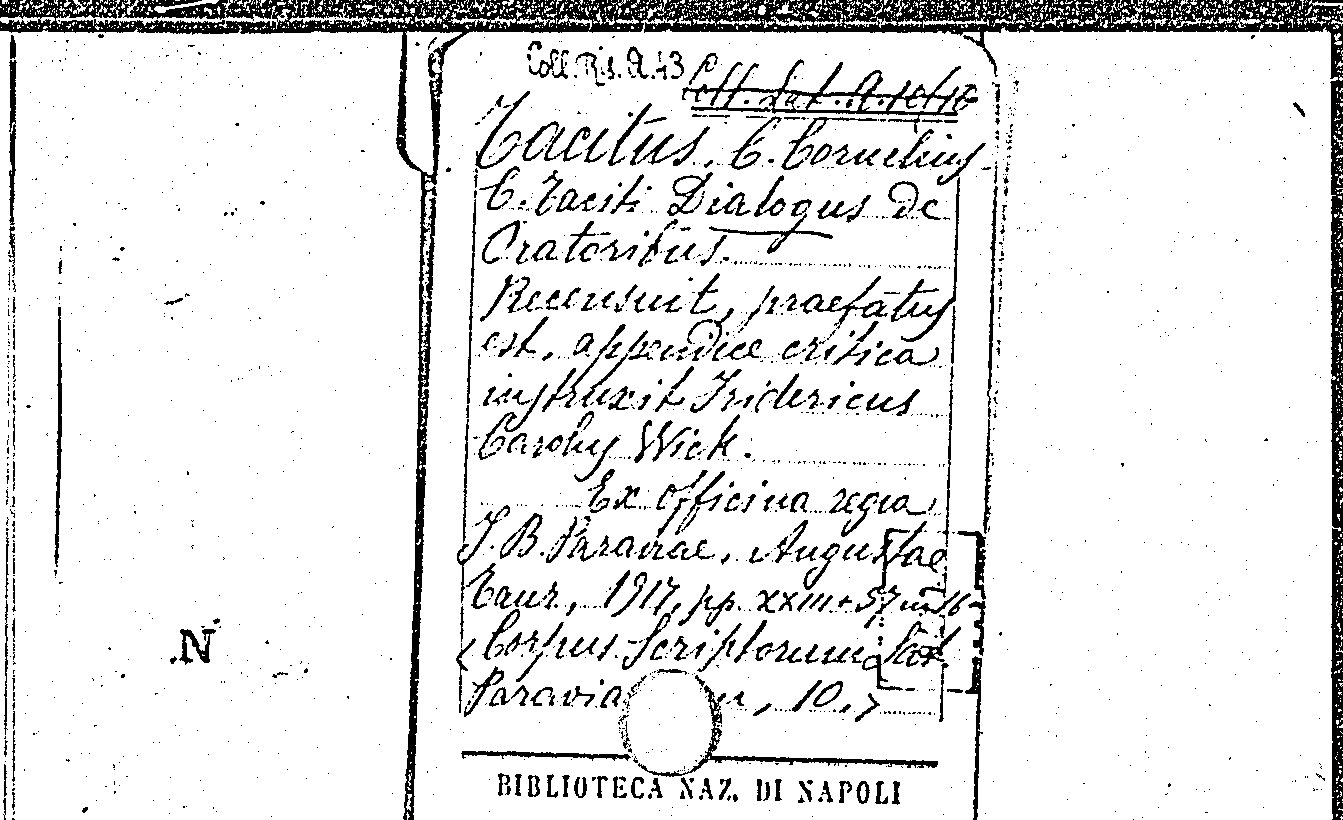 Coll. Ris. A. 43
Coll. Lat. A. 10/10
Tacitus, C. Cornelius
C. Taciti Dialogus de
Oratoribus.
Recensuit, praefatus
est, appendice critica
instruxit Fridericus
Carolus Wick.
Ex officina regia
J. B. Paraviae, Augustae
Taur., 1917, pp. XXIII+57 in 16-
< Corpus Scriptorum Lat.
Paravia , 10. >
N
BIBLIOTECA NAZ. DI NAPOLI